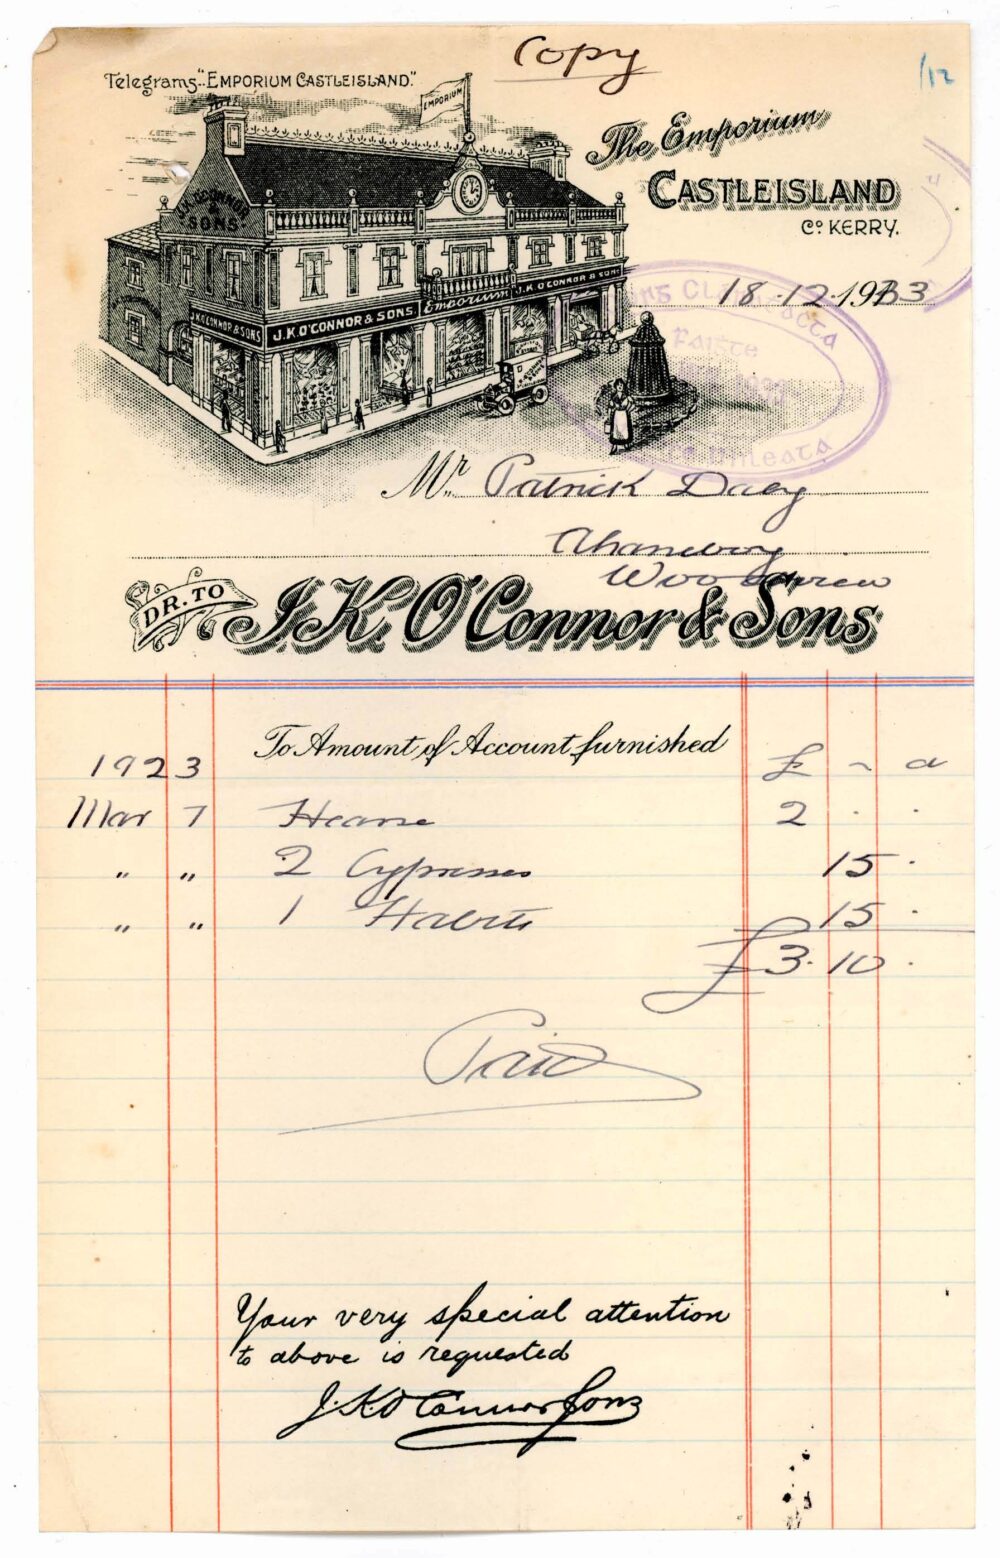 Copy
/12
Telegrams:"EMPORIUM CASTLEISLAND."
EMPORIUM
The Emporium
CASTLEISLAND
Co. KERRY.
J.K. O'CONNOR
& SONS.
J.K.O'CONNOR & SONS
J.K.O'CONNOR & SONS.
Emporium
J.K.O'CONNOR & SONS
18-12-1933
Mr. Patrick Daly
DR. TO
J.K. O'Connor & Sons
To Amount of Account furnished
1923 £ ~ d
Mar 7 Hearse 2 . .
" " 2 Cypresses 15 .
" " 1 Habits 15 .
£3.10 .
Paid
Your very special attention
to above is requested
J.K.O'Connor Sons